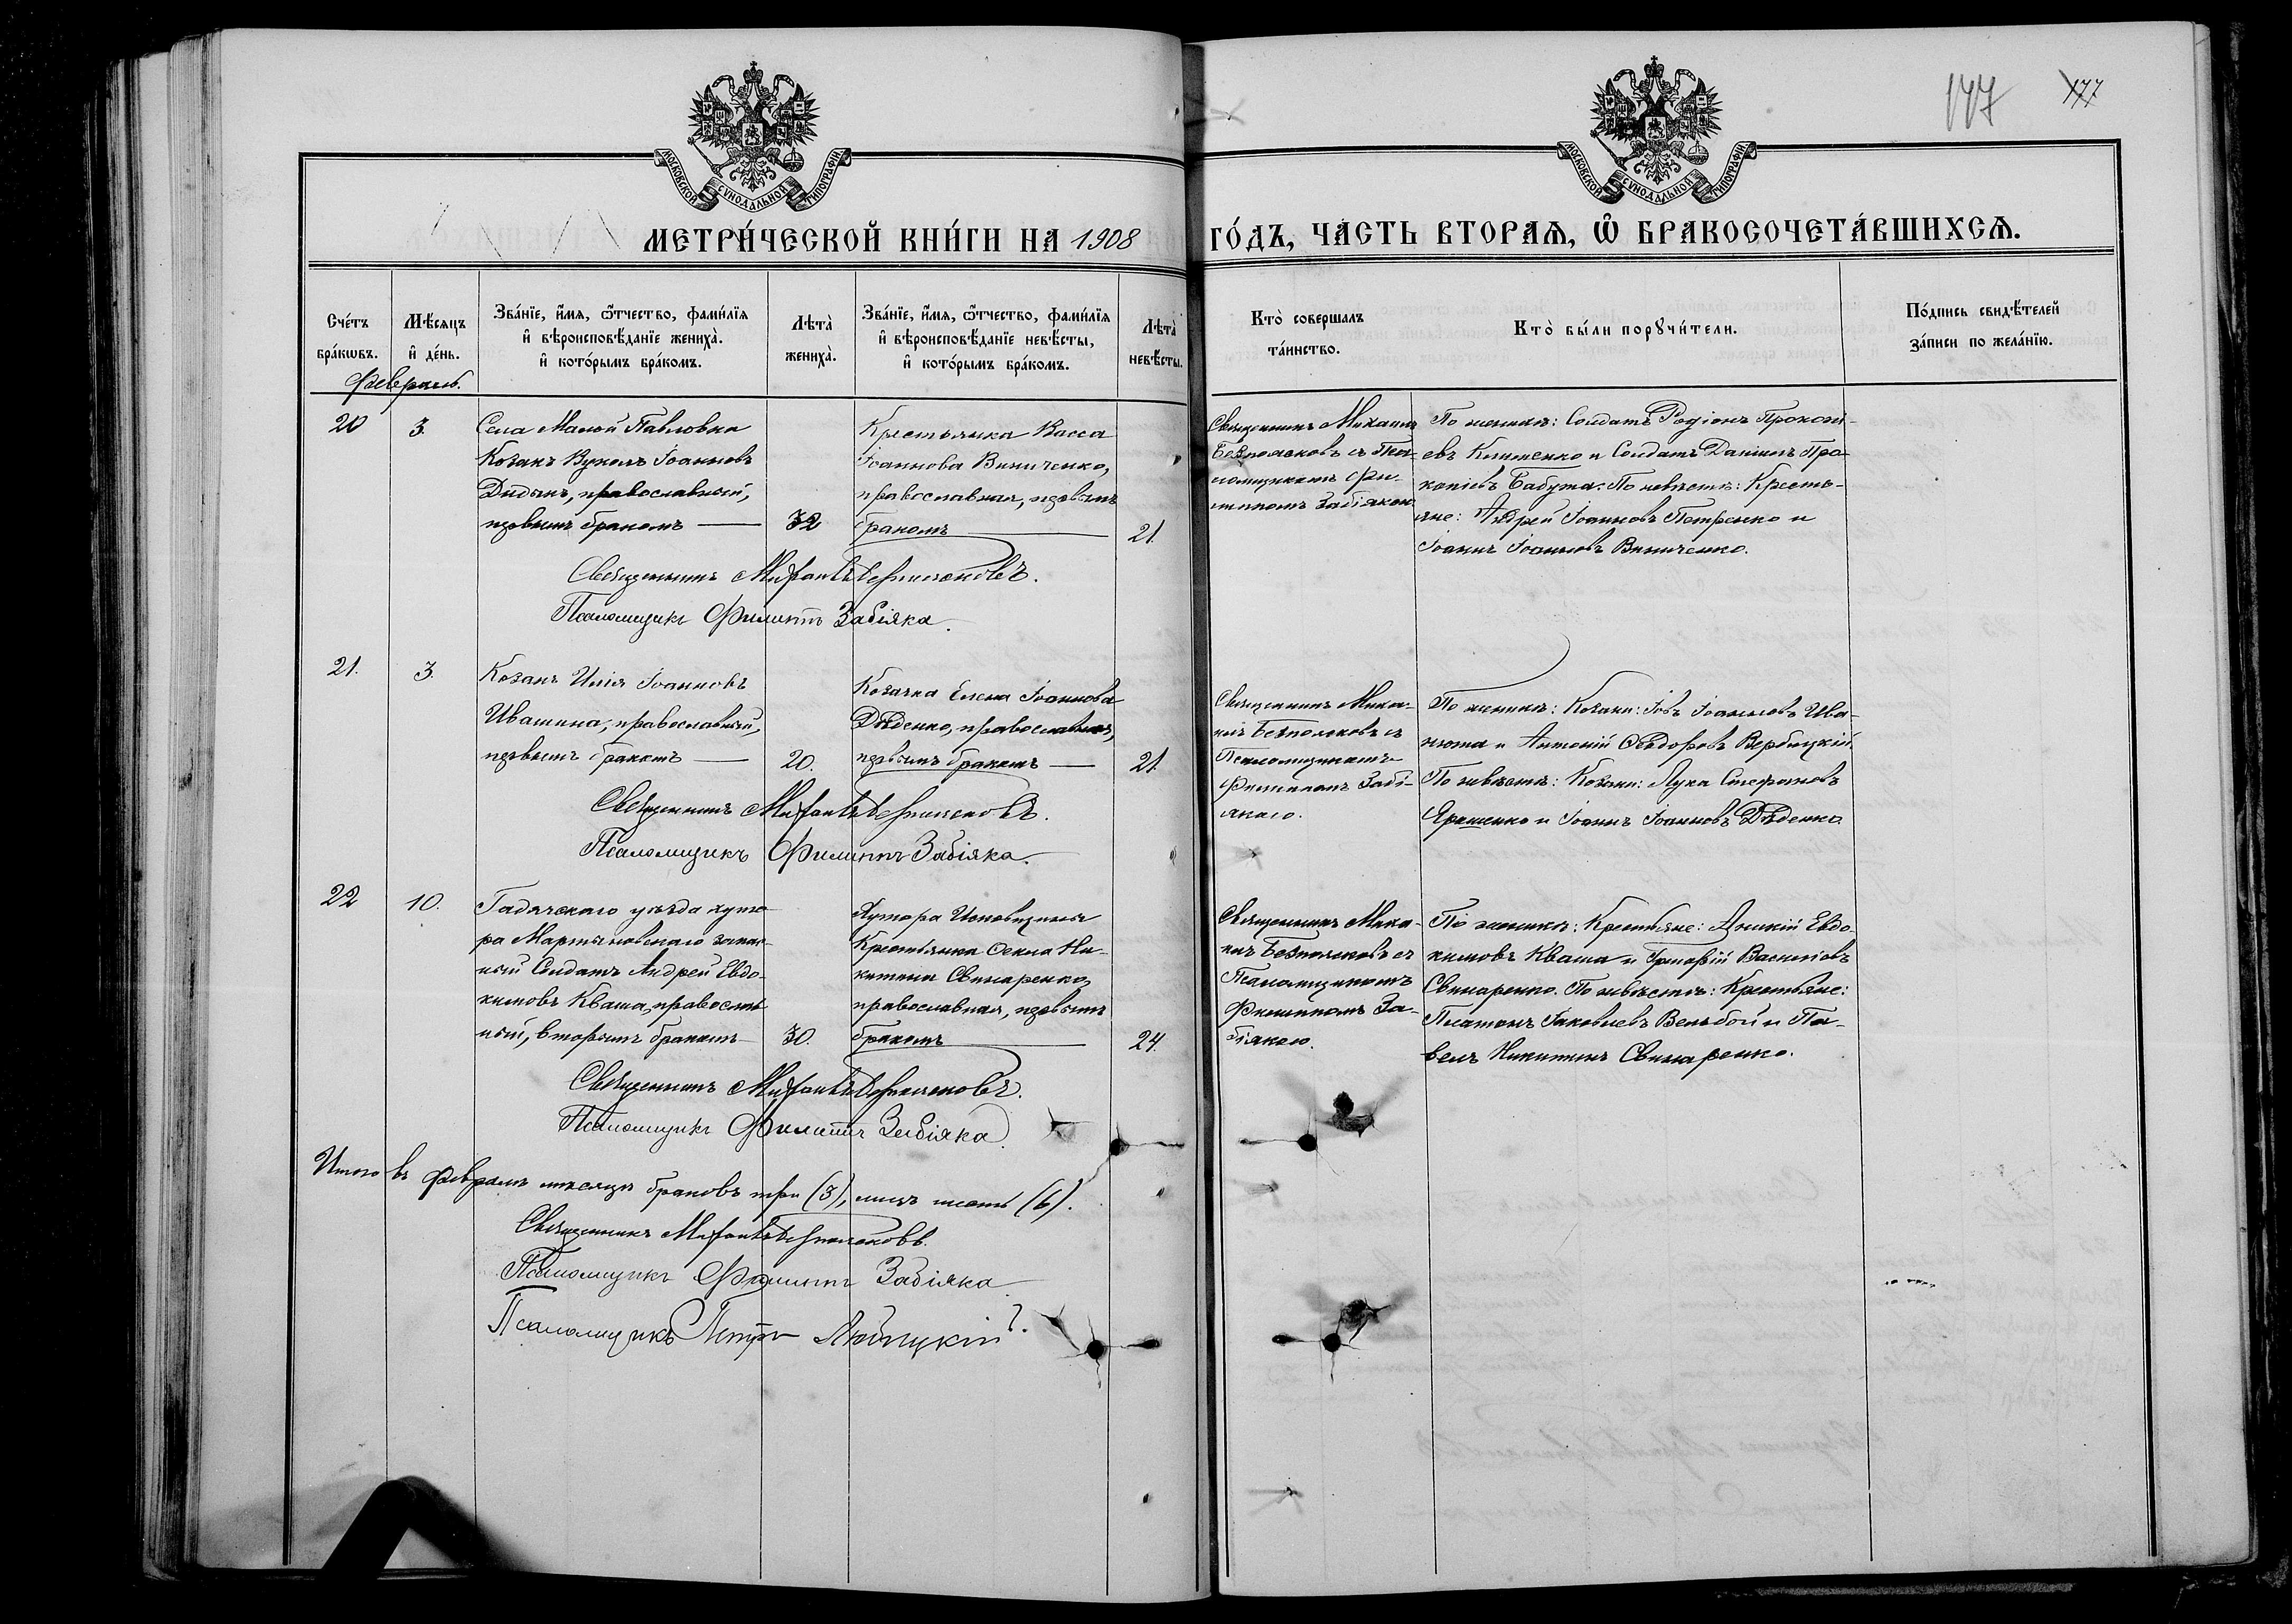 177 177
МОСКОВСКОЙ СѴНОДАЛЬНОЙ ТИПОГРАФІИ
МОСКОВСКОЙ СѴНОДАЛЬНОЙ ТИПОГРАФІИ
МЕТРИ́ЧЕСКОЙ КНИ́ГИ НА 1908 ГО́ДЪ, ЧА́СТЬ ВТОРАѦ, Ѿ БРАКОСОЧЕТА́ВШИХСѦ.
Сче́тъ бра́кѡвъ.
Мѣ́сяцъ и҆ де́нь.
Зва́нїе, и҆́мѧ, ѻ҆́тчество, фами́лїѧ
и҆ вѣроисповѣ́данїе жениха̀.
и҆ кото́рымъ бра́комъ.
Лѣта̀
жениха̀.
Зва́нїе, и҆́мѧ, ѻ҆́тчество, фами́лїѧ
и҆ вѣроисповѣ́данїе невѣ́сты,
и҆ кото́рымъ бра́комъ.
Лѣта̀
невѣ́сты.
Кто̀ совершалъ
та́инство.
Кто̀ бы́ли порꙋчи́тели.
По́дпись свидѣ́телей
за́писи по жела́нїю.
Февраль.
20
3.
Села Малой Павловки
Козакъ Вуколъ Іоанновъ
Дидыкъ, православный,
первымъ бракомъ
32
Крестьянка Васса
Іоаннова Виниченко,
православная, первымъ
бракомъ
21.
Священникъ Михаилъ
Безпоясковъ съ Пса-
ломщикомъ Фи-
липпомъ Забіякой
По женихѣ: Солдатъ Родіонъ Прокопі-
евъ Клименко и Солдатъ Даніилъ Про-
копіевъ Бабужа. По невѣстѣ: Кресть-
яне: Андрей Іоанновъ Петренко и
Іоаннъ Іоанновъ Виниченко.
Священникъ Михаилъ Безпоясковъ.
Псаломщикъ Филиппъ Забіяка.
21.
3.
Козакъ Илія Іоанновъ
Ивашина, православный,
первымъ бракомъ
20.
Козачка Елена Іоаннова
Дѣденко, православная,
первымъ бракомъ
21.
Священникъ Миха-
илъ Безпоясковъ съ
Псаломщикомъ
Филиппомъ Забі-
якою.
По женихѣ: Козаки: Іовъ Іоанновъ Ива-
нюта и Антоній Ѳедоровъ Вербицкій.
По невѣстѣ: Козаки: Лука Стефановъ
Ярошенко и Іоаннъ Іоанновъ Дѣденко.
Священникъ Михаилъ Безпоясковъ.
Псаломщикъ Филиппъ Забіяка.
22
10.
Гадячскаго уѣзда хуто-
ра Мартыновскаго запас-
ный Солдатъ Андрей Евдо-
кимовъ Кваша, православ-
ный, вторымъ бракомъ
30.
Хутора
Крестьянка Ѳекла Ни-
китина Свинаренко,
православная, первымъ
бракомъ
24.
Священникъ Миха-
илъ Безпоясковъ съ
Псаломщикомъ
Филиппомъ За-
біякою.
По женихѣ: Крестьяне: Аникій Евдо-
кимовъ Кваша и Григорій Василіевъ
Свинаренко. По невѣстѣ: Крестьяне:
Платонъ Іаковлевъ Вельбой и Па-
велъ Никитинъ Свинаренко.
Священникъ Михаилъ Безпоясковъ.
Псаломщикъ Филиппъ Забіяка.
Итого въ Февралѣ мѣсяцѣ браковъ три (3), лицъ шесть (6).
Священникъ Михаилъ Безпоясковъ.
Псаломщикъ Филиппъ Забіяка
Псаломщикъ Петръ